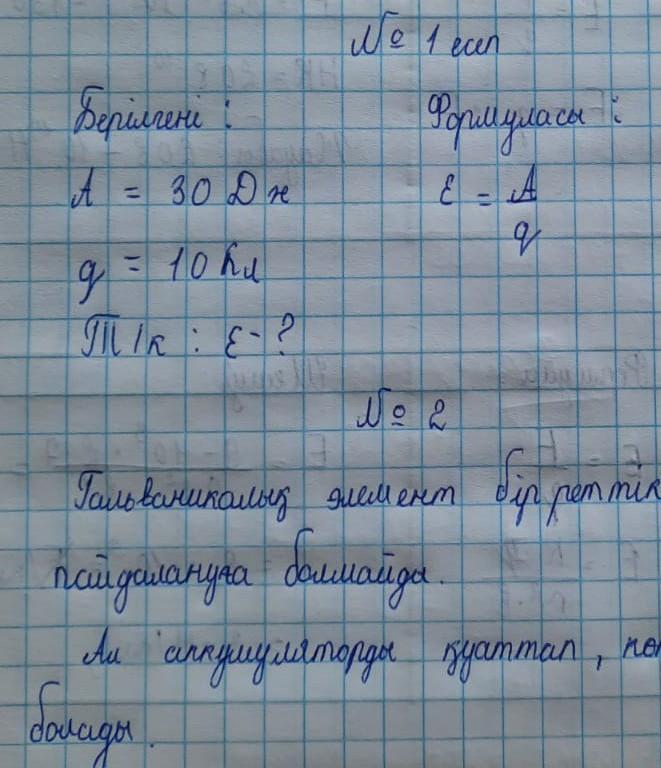 № 1 есеп
Берілгені : Формуласы :
A = 30 Дж ε = A
q
q = 10 Кл
Т/к : ε - ?
№ 2
Гальваникалық элемент бір реттік
пайдалануға болмайды.
Ал аккумуляторды қуаттап,
болады.